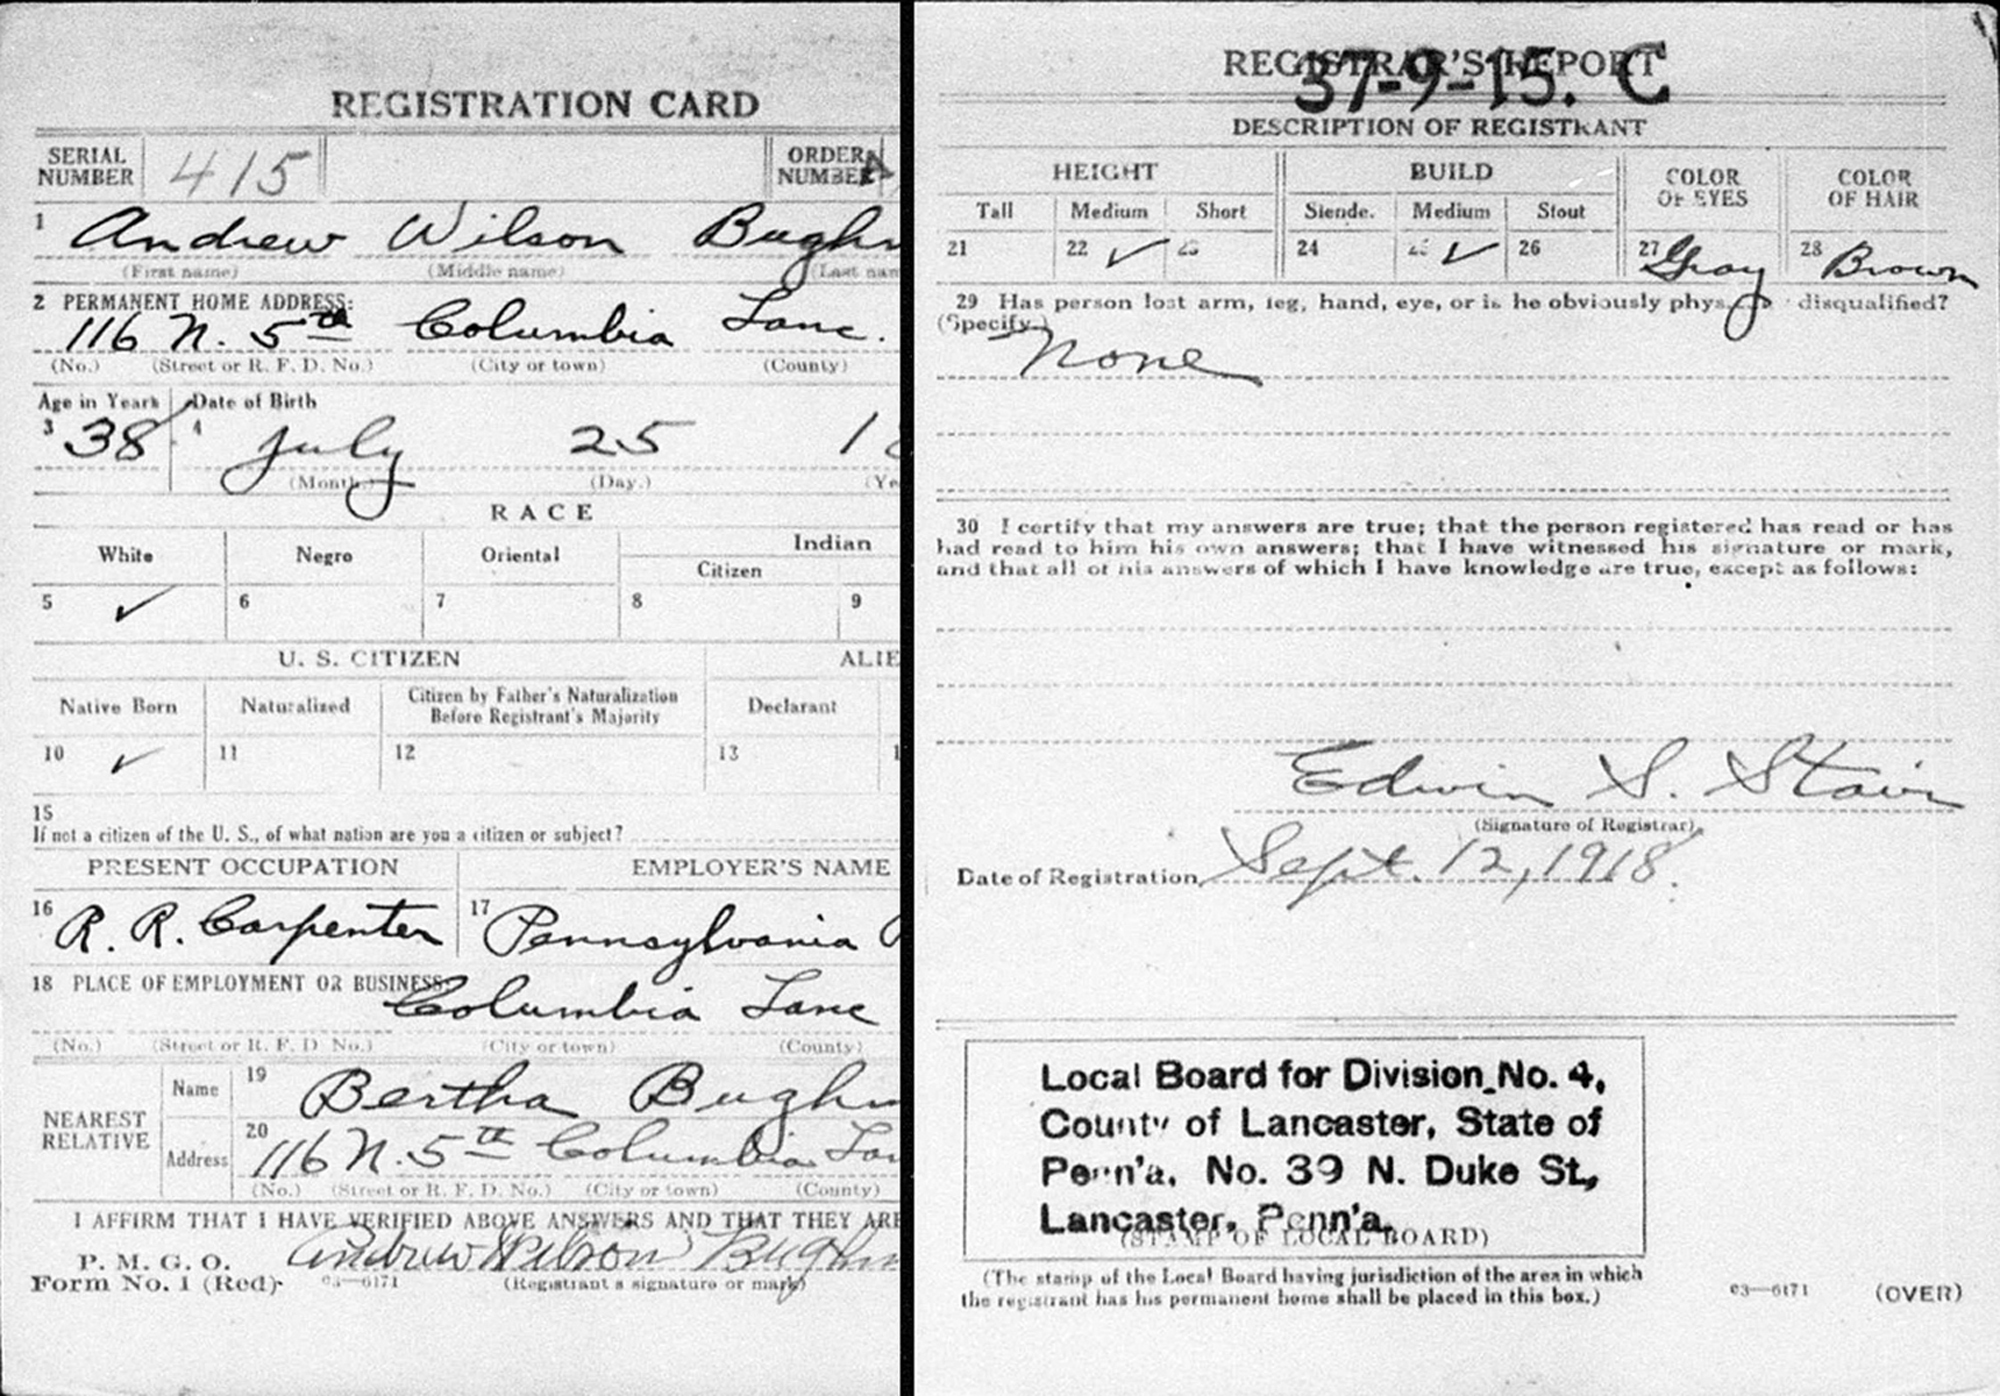 REGISTRATION CARD
SERIAL NUMBER 415 ORDER NUMBER A
1 Andrew Wilson Bughm
(First name) (Middle name) (Last nam
2 PERMANENT HOME ADDRESS:
116 N. 5th Columbia Lanc.
(No.) (Street or R. F. D. No.) (City or town) (County)
Age in Years Date of Birth
3 38 4 July 25 18
(Month.) (Day.) (Ye
RACE
White Negro Oriental Indian
Citizen
5 ✓ 6 7 8 9
U. S. CITIZEN ALIE
Native Born Naturalized Citizen by Father's Naturalization Before Registrant's Majority Declarant
10 ✓ 11 12 13 1
15
If not a citizen of the U. S., of what nation are you a citizen or subject?
PRESENT OCCUPATION EMPLOYER'S NAME
16 R. R. Carpenter 17 Pennsylvania R
18 PLACE OF EMPLOYMENT OR BUSINESS:
Columbia Lanc
(No.) (Street or R. F. D. No.) (City or town) (County)
NEAREST RELATIVE
Name 19 Bertha Bughm
Address 20 116 N. 5th Columbia Lan
(No.) (Street or R. F. D. No.) (City or town) (County)
I AFFIRM THAT I HAVE VERIFIED ABOVE ANSWERS AND THAT THEY ARE
P. M. G. O.
Form No. 1 (Red) 03—6171 Andrew Wilson Bughm
(Registrant's signature or mark)
REGISTRAR'S REPORT
37-9-15. C
DESCRIPTION OF REGISTRANT
HEIGHT BUILD COLOR OF EYES COLOR OF HAIR
Tall Medium Short Slender Medium Stout
21 22 ✓ 23 24 25 ✓ 26 27 Gray 28 Brown
29 Has person lost arm, leg, hand, eye, or is he obviously physically disqualified?
(Specify.)
None
30 I certify that my answers are true; that the person registered has read or has
had read to him his own answers; that I have witnessed his signature or mark,
and that all of his answers of which I have knowledge are true, except as follows:
Edwin S. Stair
(Signature of Registrar)
Date of Registration Sept. 12, 1918.
Local Board for Division No. 4,
County of Lancaster, State of
Penn'a, No. 39 N. Duke St.,
Lancaster, Penn'a.
(STAMP OF LOCAL BOARD)
(The stamp of the Local Board having jurisdiction of the area in which
the registrant has his permanent home shall be placed in this box.)
03—6171 (OVER)